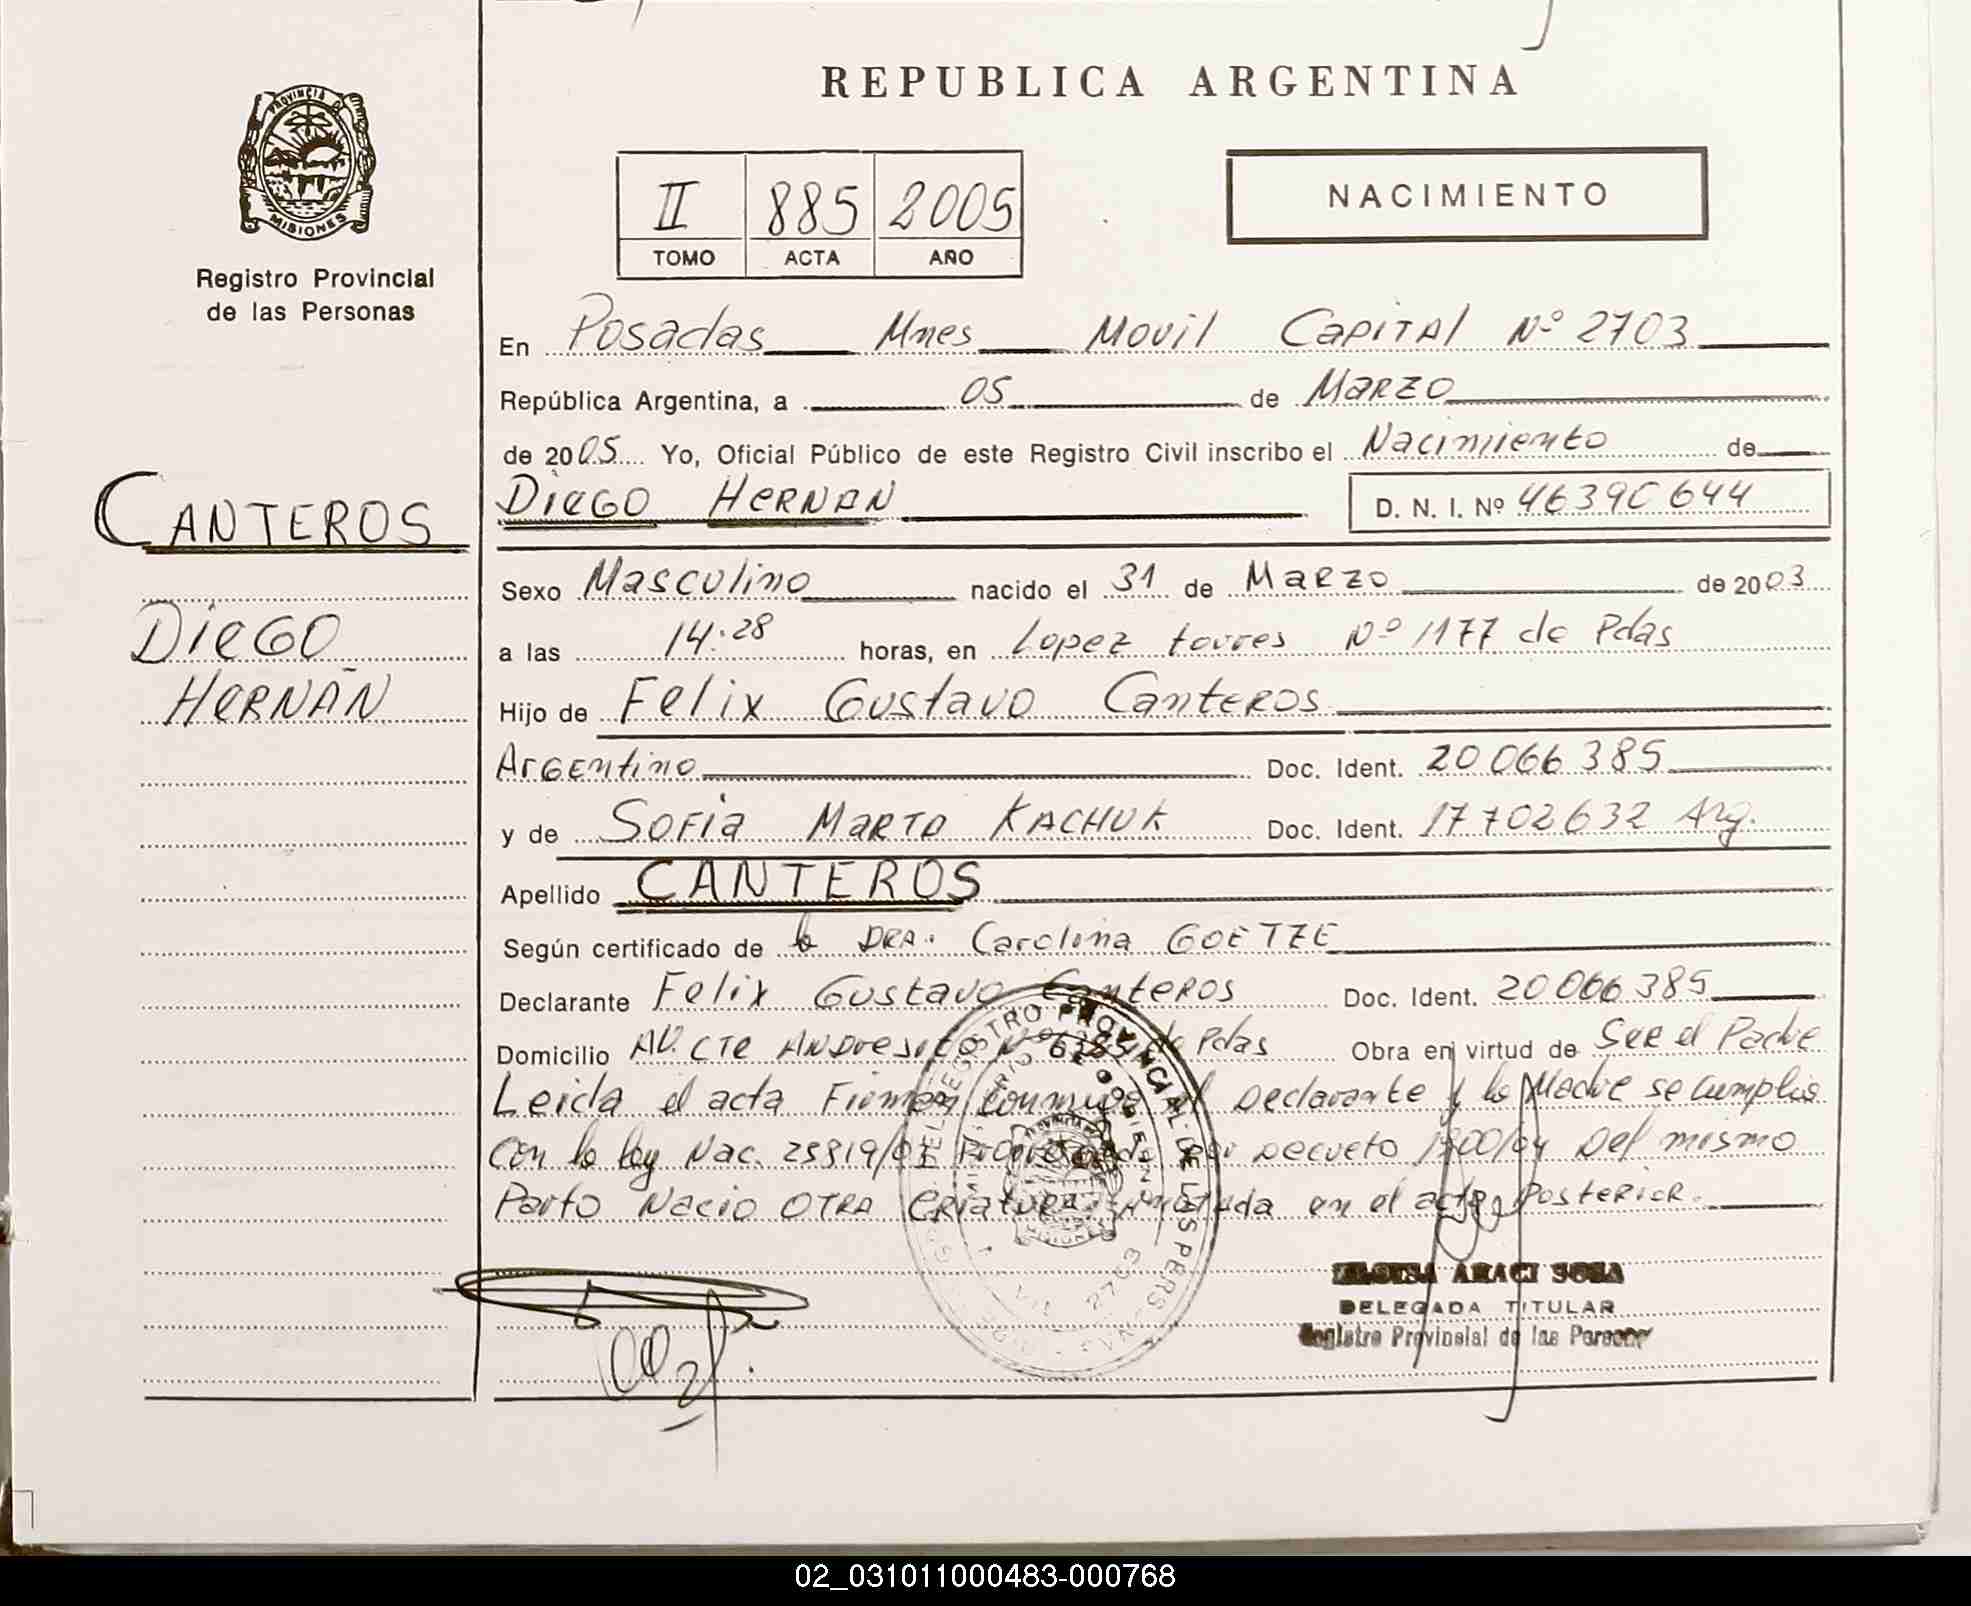 REPUBLICA ARGENTINA
PROVINCIA DE MISIONES
Registro Provincial
de las Personas
II 885 2005
TOMO ACTA AÑO
NACIMIENTO
En Posadas Mnes Movil Capital Nº 2703
República Argentina, a 05 de Marzo
de 2005 Yo, Oficial Público de este Registro Civil inscribo el Nacimiento de
CANTEROS
DIEGO HERNAN D. N. I. Nº 46390644
Sexo Masculino nacido el 31 de Marzo de 2003
DIEGO
HERNAN
a las 14:28 horas, en Lopez torres Nº 1177 de Pdas
Hijo de Felix Gustavo Canteros
Argentino Doc. Ident. 20 066 385
y de Sofia Marta KACHUK Doc. Ident. 17 702 632 Arg.
Apellido CANTEROS
Según certificado de la DRA. Carolina GOETZE
Declarante Felix Gustavo Canteros Doc. Ident. 20 066 385
Domicilio AV. CTE ANDresito Nº de Pdas Obra en virtud de Ser el Padre
Leida el acta Firman conmigo el Declarante y la Madre se cumplio
con la ley Nac. 25819/03 por Decreto 1800/04 Del mismo
Parto Nacio OTRA Criatura Anotada en el acta Posterior.
REGISTRO PROVINCIAL DE LAS PERSONAS
2703
ARACI SOSA
DELEGADA TITULAR
Registro Provincial de las Personas
02_031011000483-000768